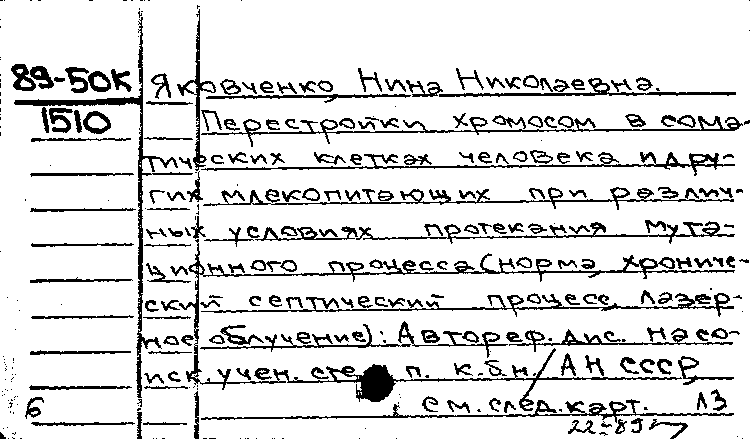 89-50К Яковченко, Нина Николаевна.
1510 Перестройки хромосом в сома-
тических клетках человека и дру-
гих млекопитающих при различ-
ных условиях протекания мута-
ционного процесса (норма, хрониче-
ский септический процесс, лазер-
ное облучение): Автореф. дис. на со-
иск. учен. сте п. к.б.н./АН СССР
6 см. след. карт. ЛЗ
22-89